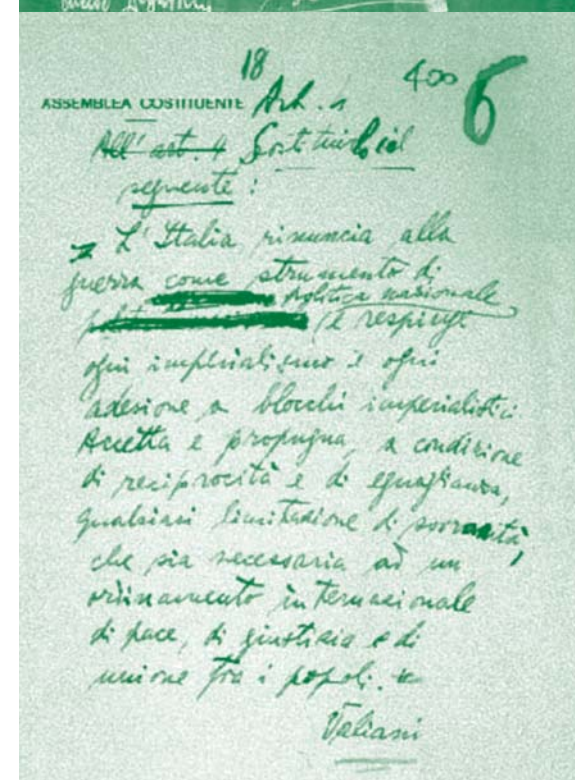 18
400 6
ASSEMBLEA COSTITUENTE Art. 1
All' art. 4 Sostituirlo col
seguente :
L'Italia rinuncia alla
guerra come strumento di
politica nazionale
e respinge
ogni imperialismo e ogni
adesione a blocchi imperialistici.
Accetta e propugna, a condizione
di reciprocità e di eguaglianza,
qualsiasi limitazione di sovranità,
che sia necessaria ad un
ordinamento internazionale
di pace, di giustizia e di
unione fra i popoli.
Valiani